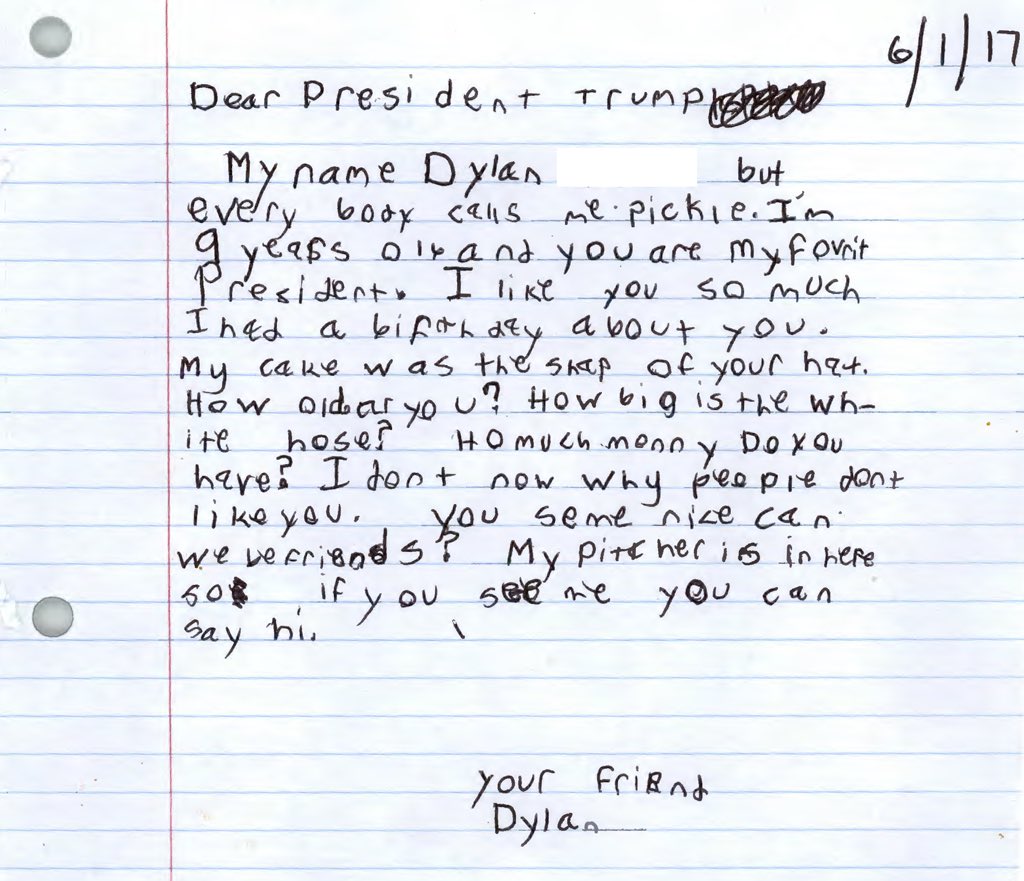 6/1/17
Dear President Trump
My name Dylan but
every body calls me pickle. I'm
9 years old and you are my fovrit
President. I like you so much
I had a birthday about you.
My cake was the shap of your hat.
How old ar you? How big is the wh-
ite hose? Ho much monny Do you
have? I dont now why peeple dont
like you. You seme nice can
we be friends? My pitcher is in here
so if you see me you can
say hi.
your friend
Dylan